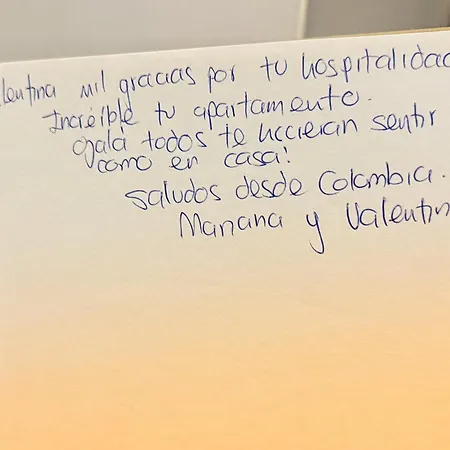 lentina mil gracias por tu hospitalidad
Increíble tu apartamento.
Ojalá todos te hicieran sentir
como en casa!
Saludos desde Colombia.
Mariana y Valentin